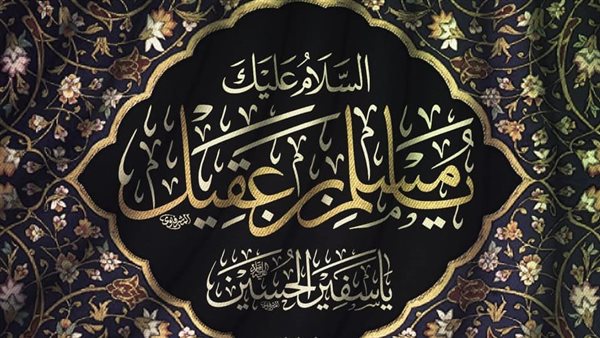 السَّلَامُ عَلَيْكَ
يا مُسْلِم بن عَقِيل
يا سَفير الحُسَين